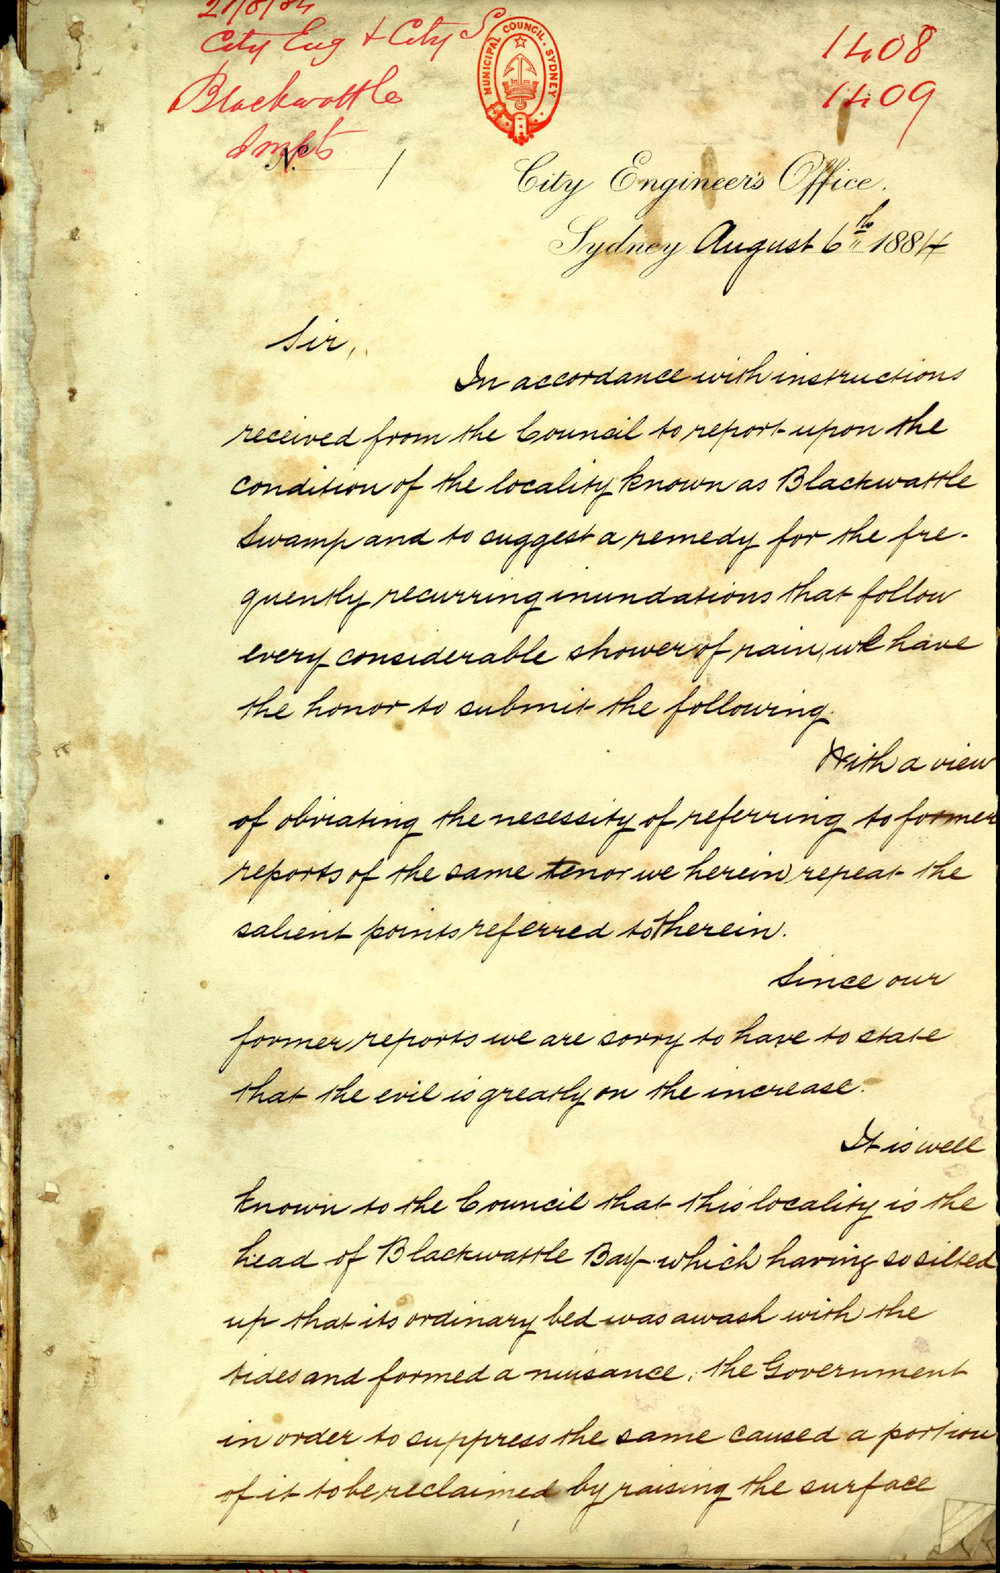 21/8/84
City Eng & City S
Blackwattle
Impts
MUNICIPAL COUNCIL. SYDNEY
1408
1409
No. 1
City Engineer's Office.
Sydney August 6th 1884
Sir,
In accordance with instructions
received from the Council to report upon the
condition of the locality known as Blackwattle
Swamp and to suggest a remedy for the fre-
quently recurring inundations that follow
every considerable shower of rain, we have
the honor to submit the following.
With a view
of obviating the necessity of referring to former
reports of the same tenor we herein repeat the
salient points referred to therein.
Since our
former reports we are sorry to have to state
that the evil is greatly on the increase.
It is well
known to the Council that this locality is the
head of Blackwattle Bay which having so silted
up that its ordinary bed was awash with the
tides and formed a nuisance, the Government
in order to suppress the same caused a portion
of it to be reclaimed by raising the surface